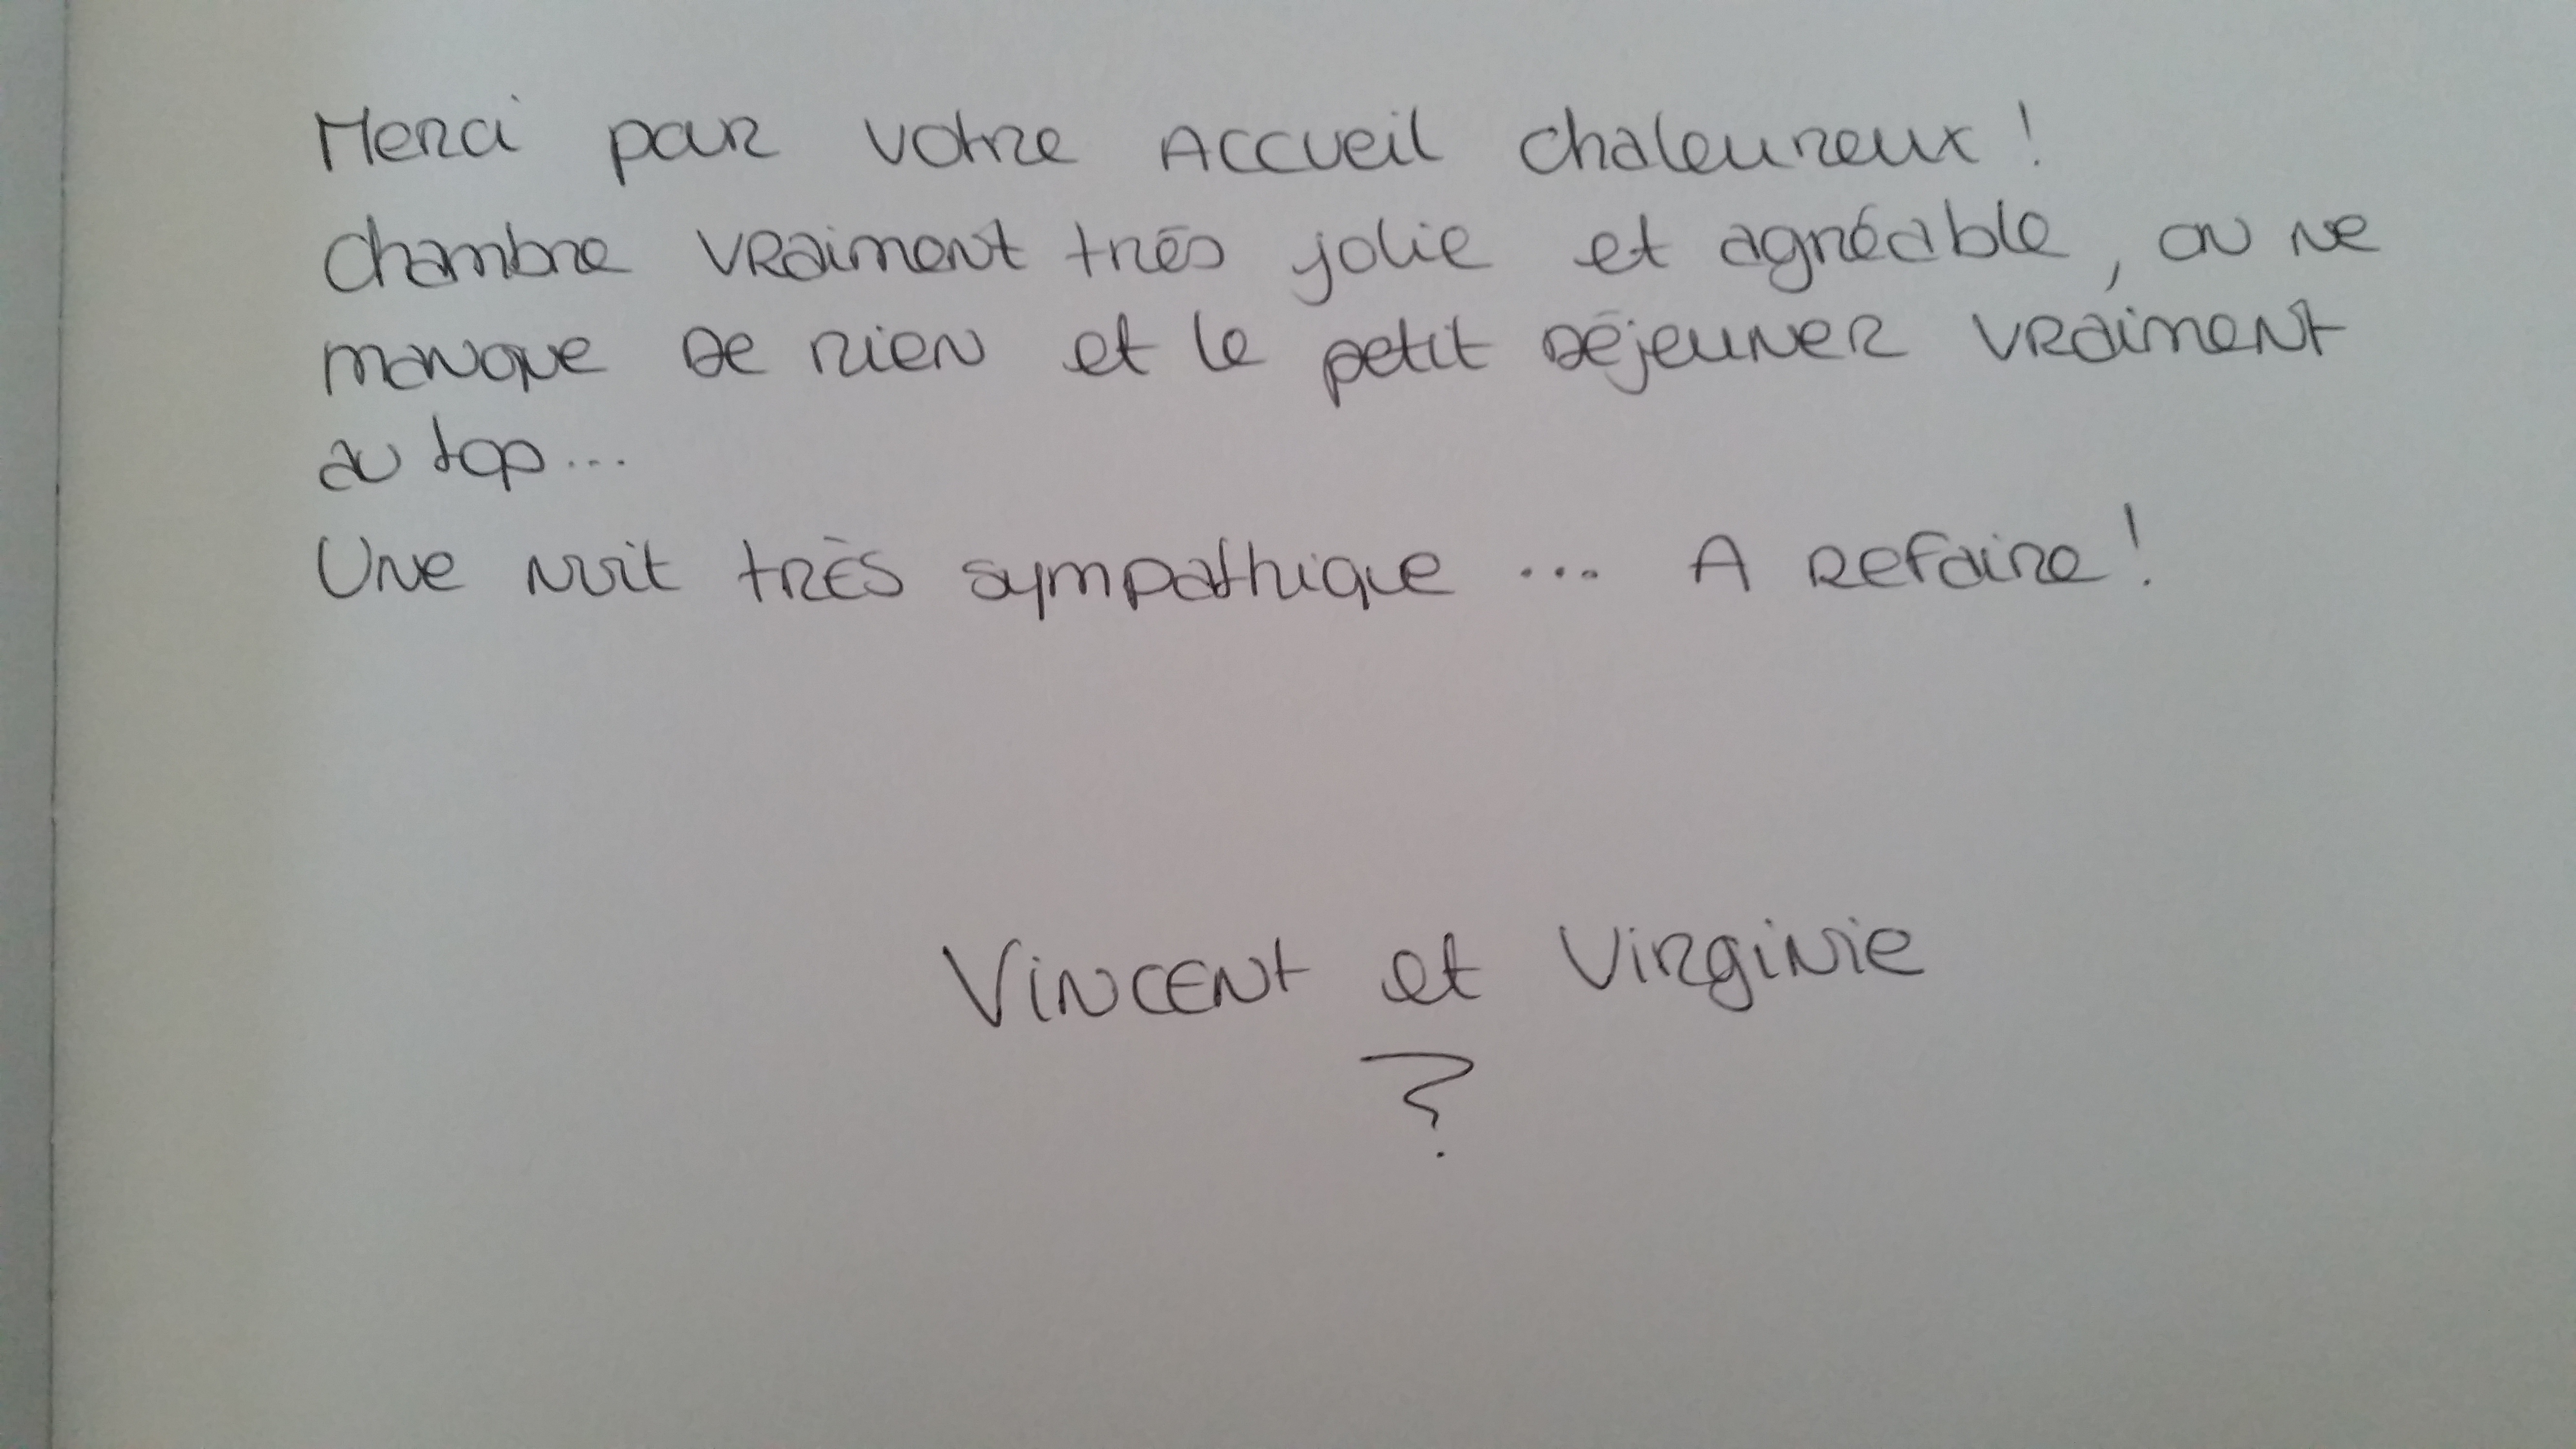 Merci pour votre Accueil chaleureux !
Chambre vraiment très jolie et agréable, on ne
manque de rien et le petit déjeuner vraiment
au top...
Une nuit très sympathique ... A refaire !
Vincent et Virginie
?